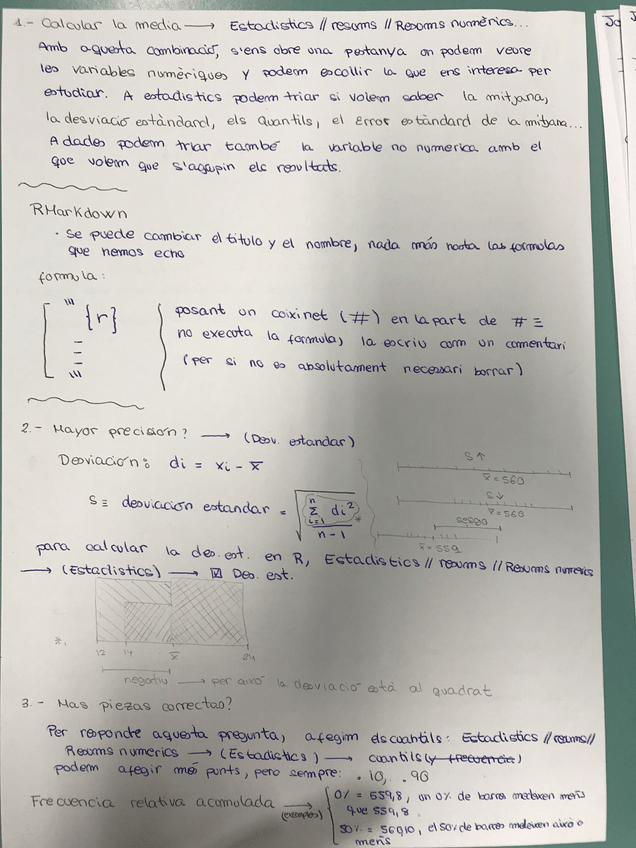 Jo
J
1.- Calcular la media → Estadistics // resums // Resums numèrics...
Amb aquesta combinació, s'ens obre una pestanya on podem veure
les variables numèriques y podem escollir la que ens interesa per
estudiar. A estadistics podem triar si volem saber la mitjana,
la desviació estàndard, els quantils, el error estàndard de la mitjana...
A dades podem triar també la variable no numerica amb el
que volem que s'agupin els resultats.
RMarkdown
· Se puede cambiar el titulo y el nombre, nada más hasta las formulas
que hemos echo
formula:
''' {r}
'''
posant un coixinet (#) en la part de # ≡
no executa la formula, la escriu com un comentari
(per si no es absolutament necessari borrar)
2.- Mayor precision? → (Desv. estandar)
Desviacion: di = xi - x̄
S ≡ desviacion estandar = √(Σ di² / n-1)
n
i=1
*
S↑
x̄ = 560
S↓
x̄ = 560
sesgo
x̄ = 559
para calcular la des. est. en R, Estadistics // resums // Resums numerics
→ (Estadistics) → ☑ Des. est.
*.
12 14 x̄ 24
negatiu → per això la desviació està al quadrat
3.- Mas piezas correctas?
Per responde aquesta pregunta, afegim els cuantils: Estadistics // resums //
Resums numerics → (Estadistics) → cuantils (y frecuencia)
podem afegir més punts, pero sempre: .10, .90
Frecuencia relativa acumulada → (exemples)
0% = 559,8, un 0% de barres medeixen menys
que 559,8.
50% = 560,10, el 50% de barres medeixen això o
menys